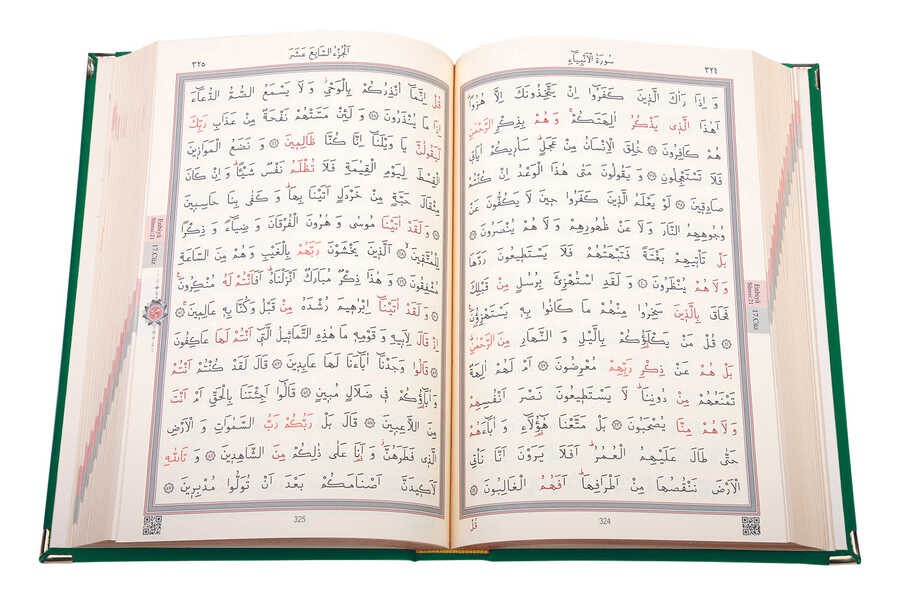 ٣٢٤
سُورَةُ الْاَنْبِيَاءِ
وَ اِذَا رَاٰكَ الَّذ۪ينَ كَفَرُٓوا اِنْ يَتَّخِذُونَكَ اِلَّا هُزُوًا
اَهٰذَا الَّذ۪ي يَذْكُرُ اٰلِهَتَكُمْ وَ هُمْ بِذِكْرِ الرَّحْمٰنِ
هُمْ كَافِرُونَ ۝ خُلِقَ الْاِنْسَانُ مِنْ عَجَلٍ سَاُر۪يكُمْ اٰيَات۪ي
فَلَا تَسْتَعْجِلُونِ ۝ وَ يَقُولُونَ مَتٰى هٰذَا الْوَعْدُ اِنْ كُنْتُمْ
صَادِق۪ينَ ۝ لَوْ يَعْلَمُ الَّذ۪ينَ كَفَرُوا ح۪ينَ لَا يَكُفُّونَ عَنْ
وُجُوهِهِمُ النَّارَ وَ لَا عَنْ ظُهُورِهِمْ وَ لَا هُمْ يُنْصَرُونَ ۝
بَلْ تَأْت۪يهِمْ بَغْتَةً فَتَبْهَتُهُمْ فَلَا يَسْتَط۪يعُونَ رَدَّهَا
وَ لَا هُمْ يُنْظَرُونَ ۝ وَ لَقَدِ اسْتُهْزِئَ بِرُسُلٍ مِنْ قَبْلِكَ
فَحَاقَ بِالَّذ۪ينَ سَخِرُوا مِنْهُمْ مَا كَانُوا بِه۪ يَسْتَهْزِؤُ۫نَ ۝
۝ قُلْ مَنْ يَكْلَؤُ۬كُمْ بِالَّيْلِ وَ النَّهَارِ مِنَ الرَّحْمٰنِ
بَلْ هُمْ عَنْ ذِكْرِ رَبِّهِمْ مُعْرِضُونَ ۝ اَمْ لَهُمْ اٰلِهَةٌ
تَمْنَعُهُمْ مِنْ دُونِنَا لَا يَسْتَط۪يعُونَ نَصْرَ اَنْفُسِهِمْ
وَ لَا هُمْ مِنَّا يُصْحَبُونَ ۝ بَلْ مَتَّعْنَا هٰٓؤُ۬لَٓاءِ وَ اٰبَٓاءَهُمْ
حَتّٰى طَالَ عَلَيْهِمُ الْعُمُرُ اَفَلَا يَرَوْنَ اَنَّا نَأْتِي
الْاَرْضَ نَنْقُصُهَا مِنْ اَطْرَافِهَا اَفَهُمُ الْغَالِبُونَ ۝
قُلْ
324
Enbiyâ
Sûresi:21
17.Cüz
٣٢٥
اَلْجُزْءُ السَّابِعَ عَشَرَ
قُلْ اِنَّمَٓا اُنْذِرُكُمْ بِالْوَحْيِ وَ لَا يَسْمَعُ الصُّمُّ الدُّعَٓاءَ
اِذَا مَا يُنْذَرُونَ ۝ وَ لَئِنْ مَسَّتْهُمْ نَفْحَةٌ مِنْ عَذَابِ رَبِّكَ
لَيَقُولُنَّ يَا وَيْلَنَٓا اِنَّا كُنَّا ظَالِم۪ينَ ۝ وَ نَضَعُ الْمَوَاز۪ينَ
الْقِسْطَ لِيَوْمِ الْقِيٰمَةِ فَلَا تُظْلَمُ نَفْسٌ شَيْـًٔا وَ اِنْ كَانَ
مِثْقَالَ حَبَّةٍ مِنْ خَرْدَلٍ اَتَيْنَا بِهَا وَ كَفٰى بِنَا حَاسِب۪ينَ
۝ وَ لَقَدْ اٰتَيْنَا مُوسٰى وَ هٰرُونَ الْفُرْقَانَ وَ ضِيَٓاءً وَ ذِكْرًا
لِلْمُتَّق۪ينَ ۝ اَلَّذ۪ينَ يَخْشَوْنَ رَبَّهُمْ بِالْغَيْبِ وَ هُمْ مِنَ السَّاعَةِ
مُشْفِقُونَ ۝ وَ هٰذَا ذِكْرٌ مُبَارَكٌ اَنْزَلْنَاهُ اَفَاَنْتُمْ لَهُ مُنْكِرُونَ ۝
۝ وَ لَقَدْ اٰتَيْنَٓا اِبْرٰه۪يمَ رُشْدَهُ مِنْ قَبْلُ وَ كُنَّا بِه۪ عَالِم۪ينَ ۝
اِذْ قَالَ لِاَب۪يهِ وَ قَوْمِه۪ مَا هٰذِهِ التَّمَاث۪يلُ الَّت۪ٓي اَنْتُمْ لَهَا عَاكِفُونَ
۝ قَالُوا وَجَدْنَٓا اٰبَٓاءَنَا لَهَا عَابِد۪ينَ ۝ قَالَ لَقَدْ كُنْتُمْ اَنْتُمْ
وَ اٰبَٓاؤُ۬كُمْ ف۪ي ضَلَالٍ مُب۪ينٍ ۝ قَالُٓوا اَجِئْتَنَا بِالْحَقِّ اَمْ اَنْتَ
مِنَ اللَّاعِب۪ينَ ۝ قَالَ بَلْ رَبُّكُمْ رَبُّ السَّمٰوَاتِ وَ الْاَرْضِ
الَّذ۪ي فَطَرَهُنَّ وَ اَنَا عَلٰى ذٰلِكُمْ مِنَ الشَّاهِد۪ينَ ۝ وَ تَاللّٰهِ
لَاَك۪يدَنَّ اَصْنَامَكُمْ بَعْدَ اَنْ تُوَلُّوا مُدْبِر۪ينَ ۝
325
Enbiyâ
Sûresi:21
17.Cüz